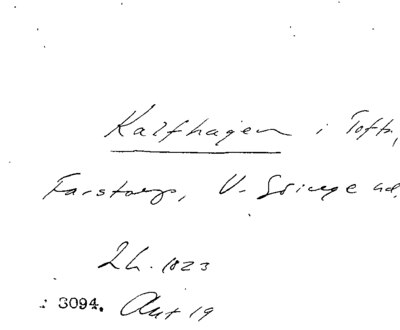 Kalfhagen i Tofta,
Farstorp, V. Göinge hd.
Lh. 1823
: 3094. Akt 19